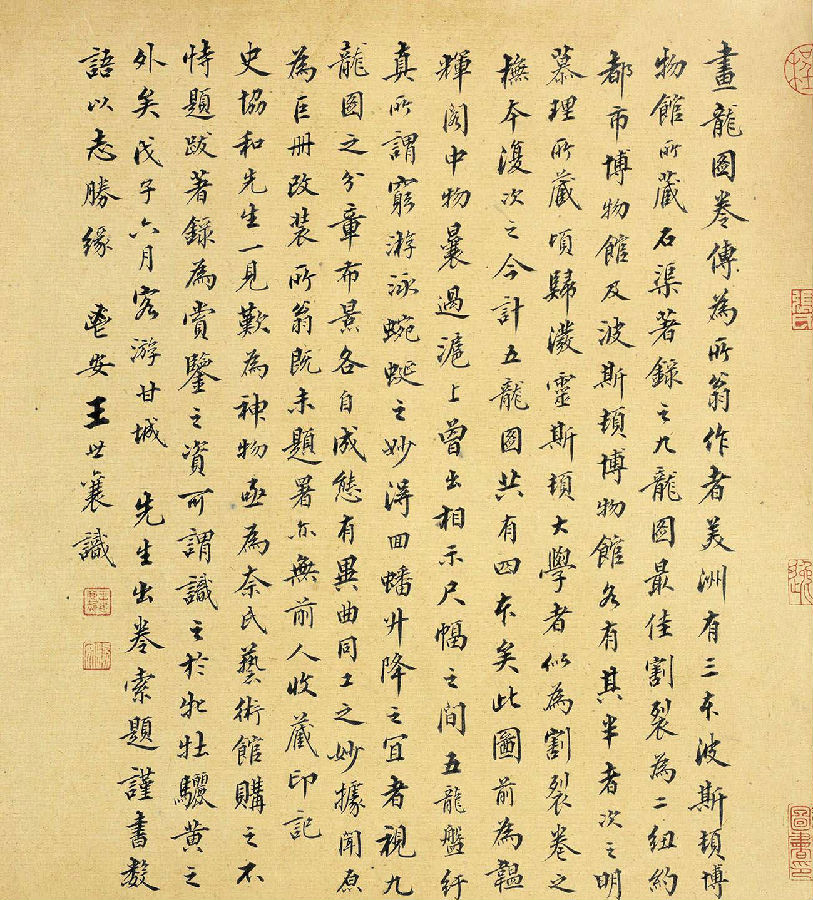 畫龍圖卷傳為所翁作者美洲有三本波斯頓博
物館所藏石渠著錄之九龍圖最佳割裂為二紐約
都市博物館及波斯頓博物館各有其半者次之明
慕理所藏頃歸潑靈斯頓大學者似為割裂卷之
橅本復次之今計五龍圖共有四本矣此圖前為韞
輝閣中物曩過滬上曾出相示尺幅之間五龍盤紆
真所謂窮游泳蜿蜒之妙得回蟠升降之宜者視九
龍圖之分章布景各自成態有異曲同工之妙據聞原
為巨冊改裝所翁既未題署亦無前人收藏印記
史協和先生一見歎為神物亟為奈氏藝術館購之不
恃題跋著錄為賞鑒之資可謂識之於牝牡驪黃之
外矣戊子六月客游甘城 先生出卷索題謹書數
語以志勝緣 鬯安王世襄識
圖書印